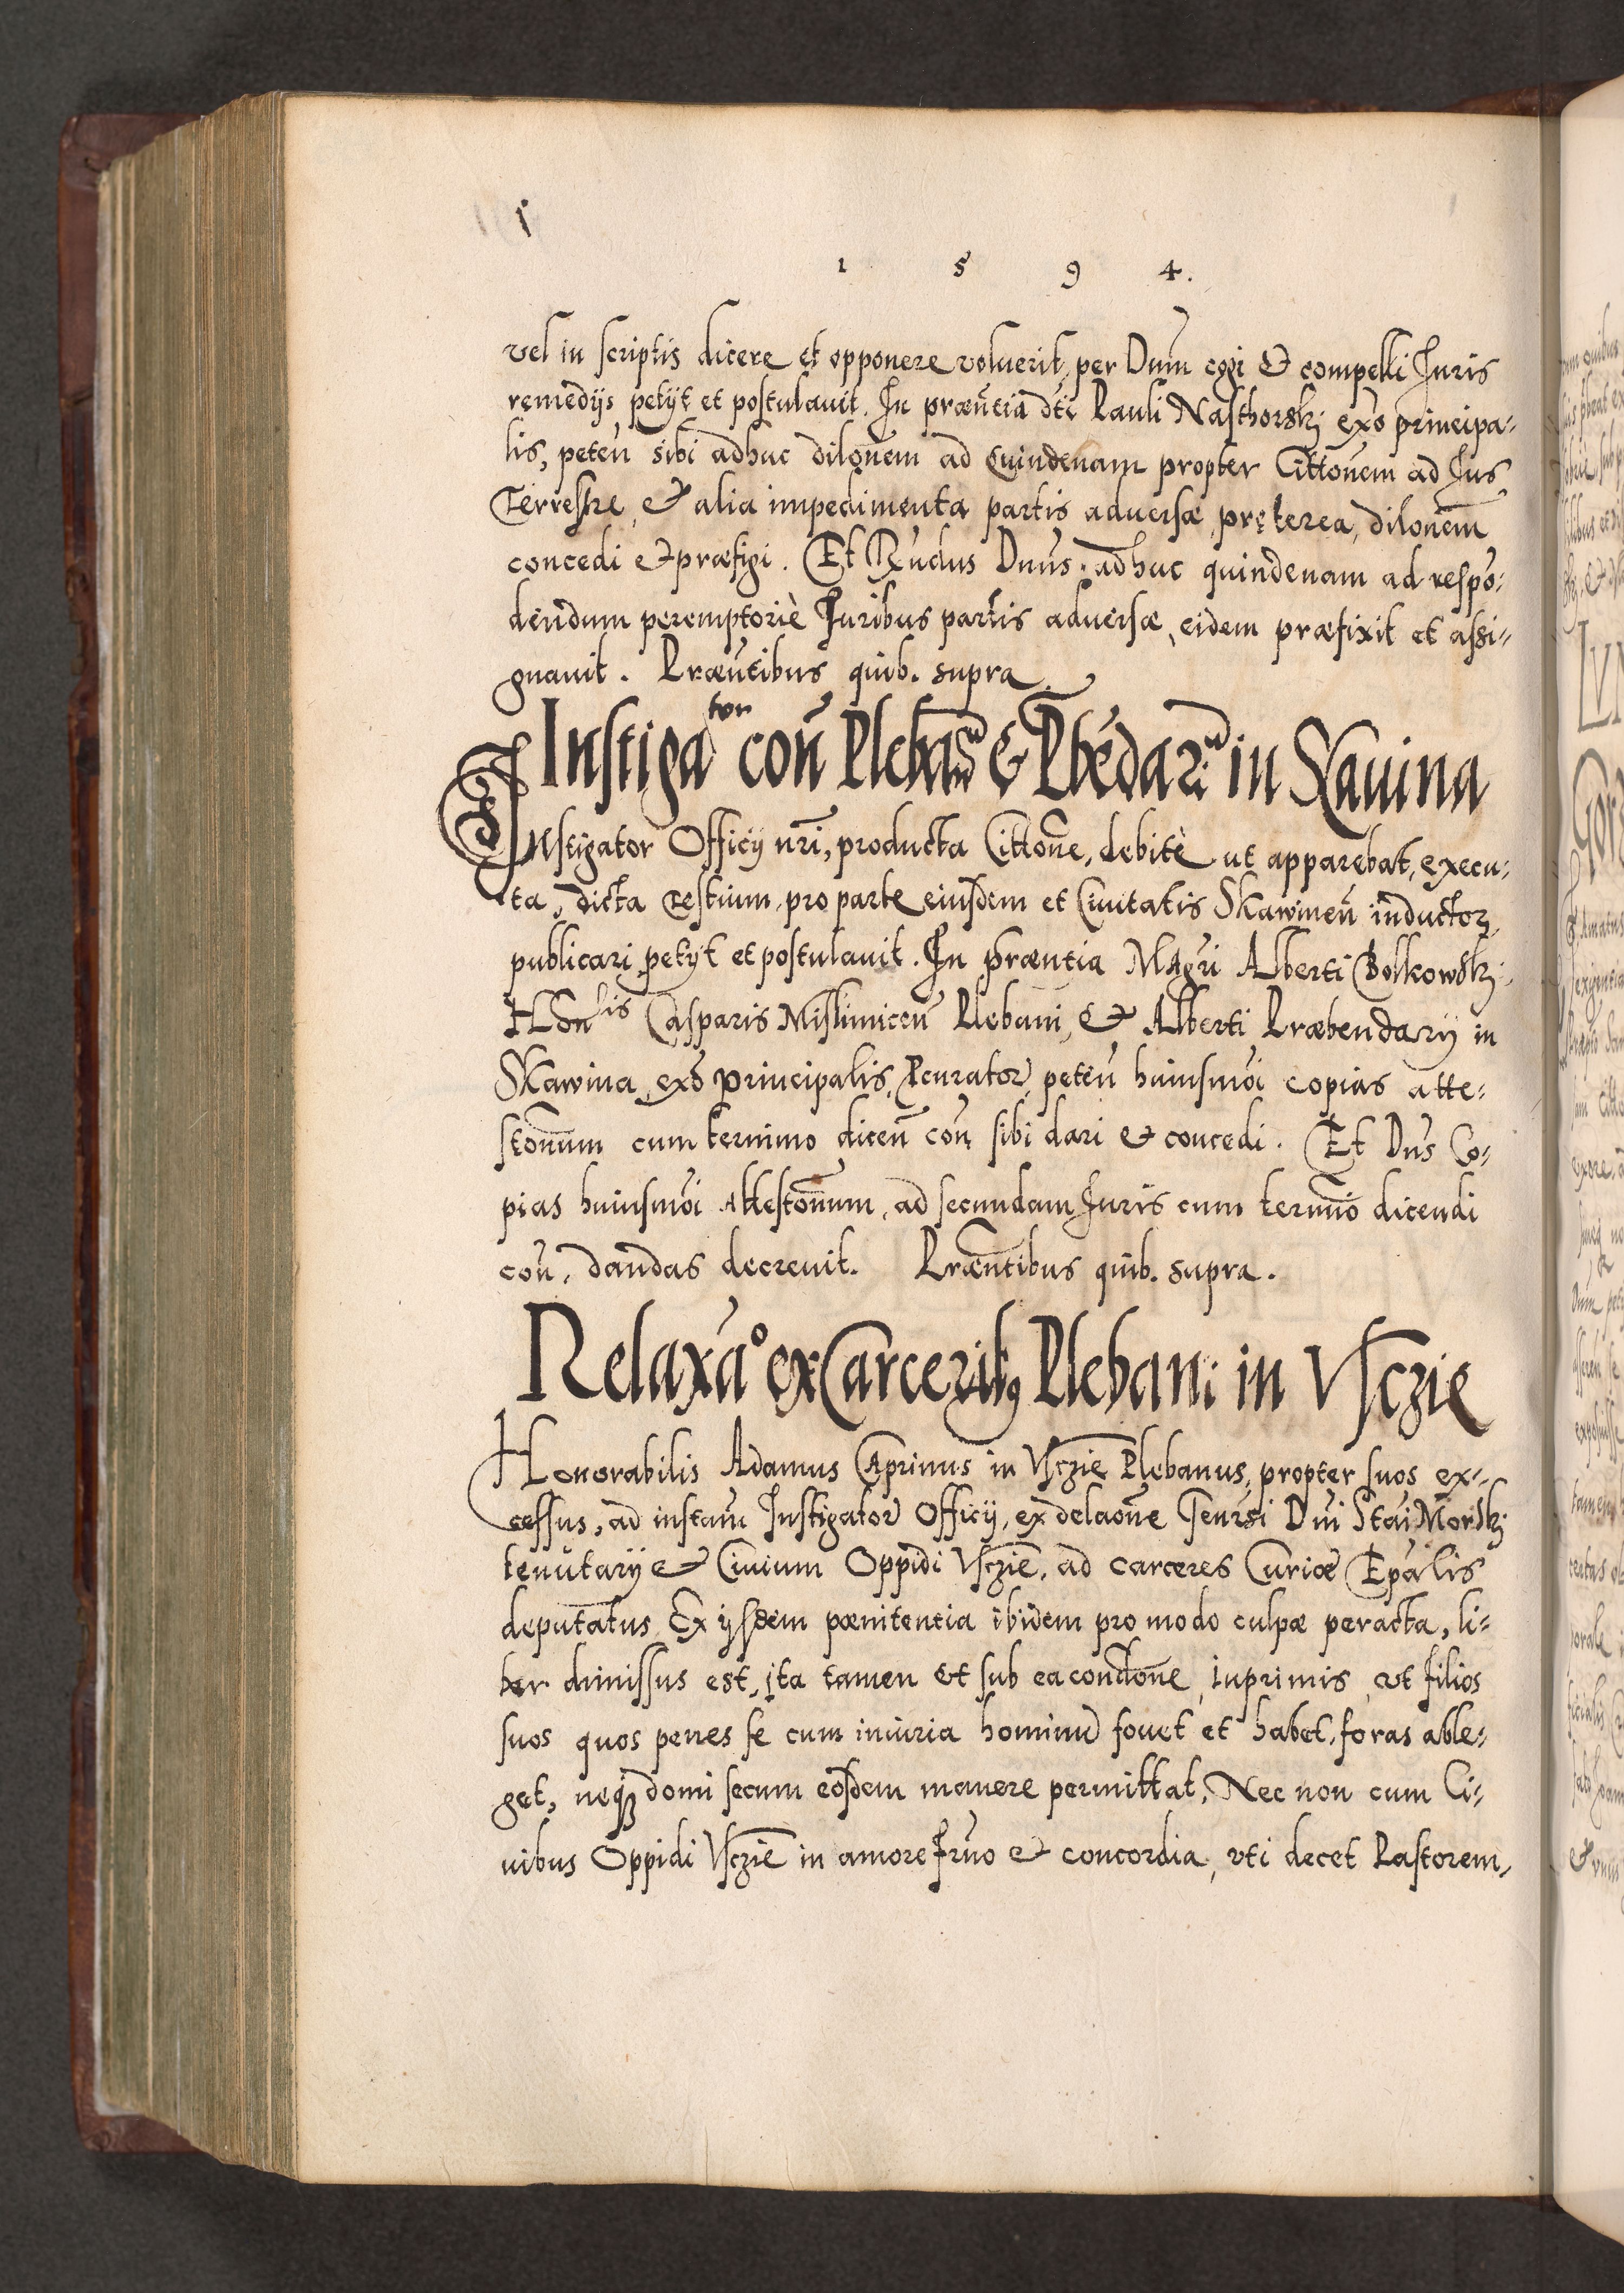 1 5 9 4.
vel in scriptis dicere et opponere voluerit, per Dnum cogi et compelli Juris
remedijs petijt et postulauit. In præntia dti Pauli Nasthorskj exo principa-
lis, peten sibi adhuc dilonem ad Quindenam propter Cittonem ad Jus
Terrestre, et alia impedimenta partis aduersæ, prętereà, dilonem
concedi et præfigi. Et Rndus Dnus. adhuc quindenam ad respo-
dendum peremptoriè Juribus partis aduersæ, eidem præfixit et assi-
gnauit. Præntibus quib. supra.
Instigator con Plebanum & Pbēdariū in Skauina
Instigator Officij nri, producta Cittone, debitè ut apparebat, execu-
ta, dicta testium, pro parte eiusdem et Ciuitatis Skawinen inductor
publicari petijt et postulauit. In præntia Mgri Alberti Bolkowskj
Honlis Casparis Mislimicen Plebani, et Alberti Præbendarij in
Skawina exo principalis, Pcurator, peten huiusmoi copias atte-
stonum cum termino dicen con sibi dari et concedi. Et Dns Co-
pias huiusmoi Attestonum, ad secundam Juris cum termino dicendi
con, dandas decreuit. Præntibus quib. supra.
Relaxao ex Carceribq Plebani in Vsczie
Honorabilis Adamus Caprinus in Vsczie Plebanus, propter suos ex-
cessus, ad instam Instigator Officij, ex delaone Genrsi Dni Stai Morskj
tenutarij et Ciuium Oppidi Vsczie, ad carceres Curiæ Epalis
deputatus. Ex ijsdem pœnitentia ibidem pro modo culpæ peracta, li-
ber dimissus est, ita tamen et sub ea condone, inprimis, vt filios
suos quos penes se cum iniuria hominū fouet et habet, foras able-
get, neq domi secum eosdem manere permittat, Nec non cum Ci-
uibus Oppidi Vsczie in amore frno et concordia, vti decet Pastorem,